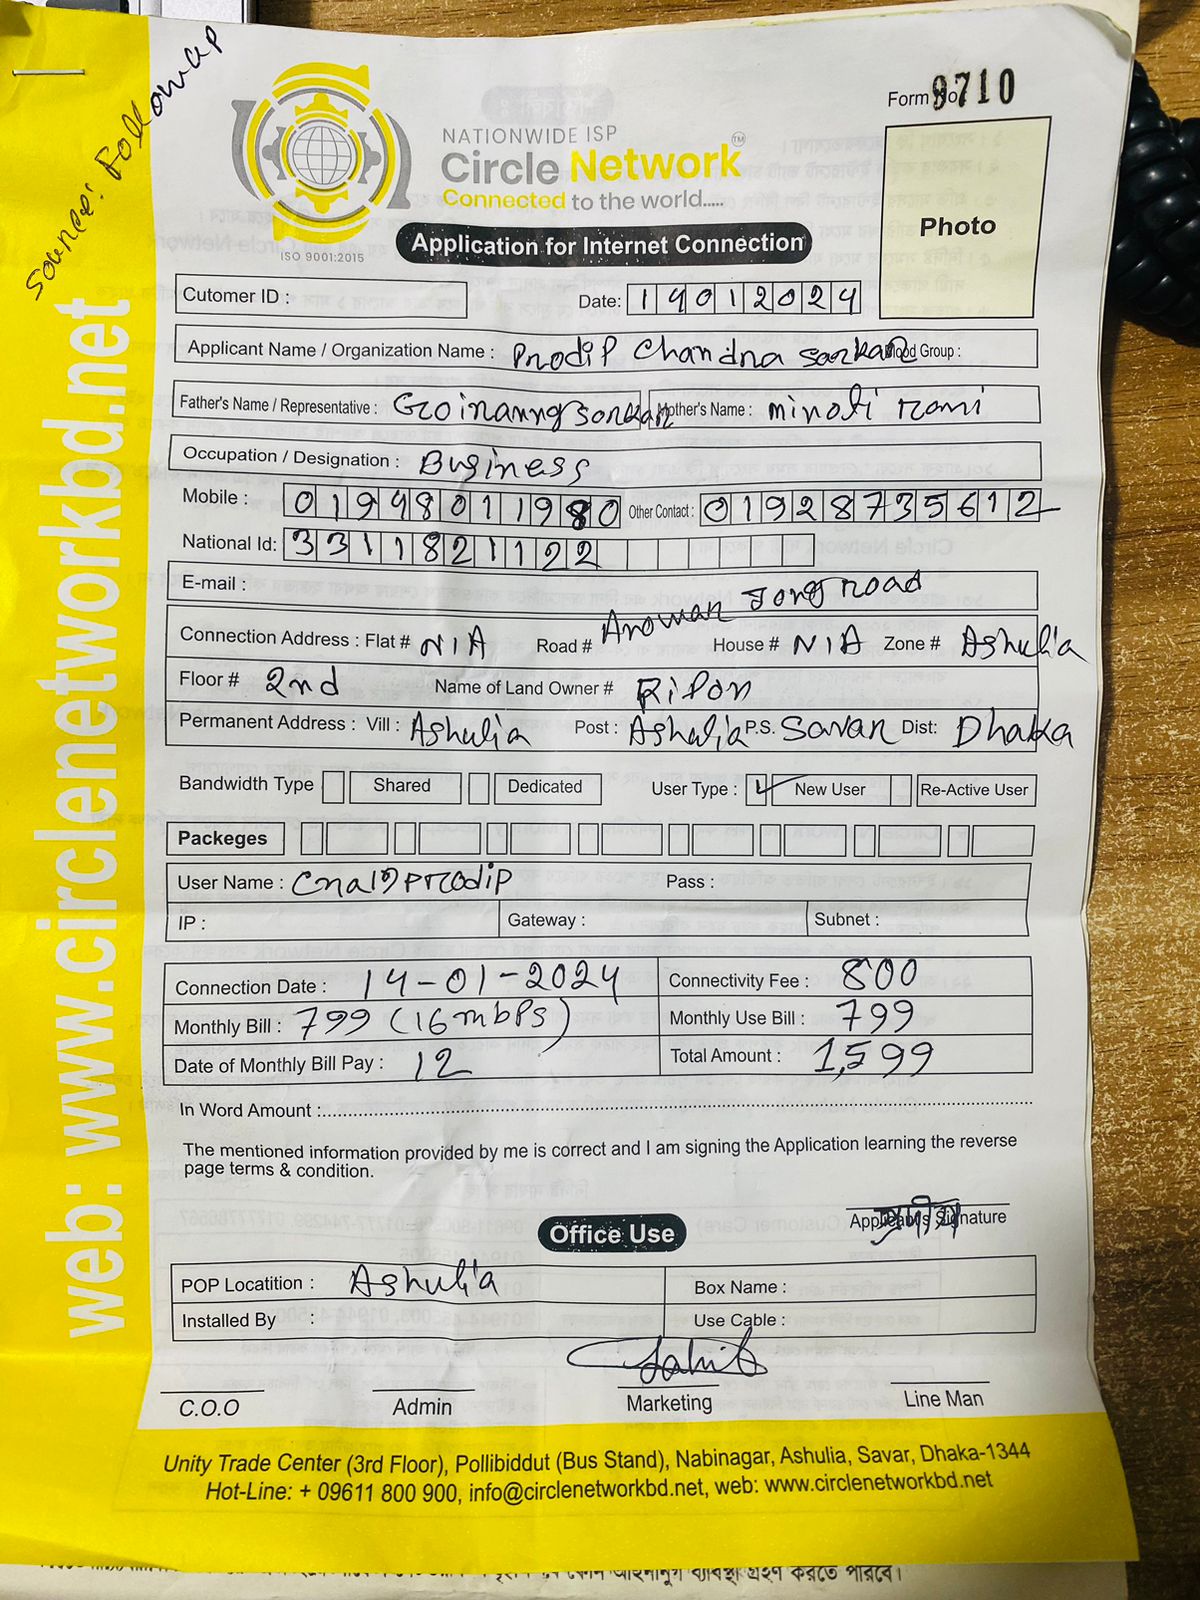 Source: Followap
Form No 9710
NATIONWIDE ISP
Circle Network™
Connected to the world.....
ISO 9001:2015
Application for Internet Connection
Photo
Cutomer ID :
Date: 14012024
Applicant Name / Organization Name : Prodip Chandra Sarkar Blood Group :
Father's Name / Representative : Goiranng Sarkar Mother's Name : minoti rani
Occupation / Designation : Business
Mobile : 01948011980 Other Contact : 01928735612
National Id: 3311821122
E-mail :
Connection Address : Flat # N/A Road # Anowar Jong road House # N/A Zone # Ashulia
Floor # 2nd Name of Land Owner # Ripon
Permanent Address : Vill : Ashulia Post : Ashulia P.S. Savar Dist: Dhaka
Bandwidth Type Shared Dedicated User Type : ✓ New User Re-Active User
Packeges
User Name : Pass :
IP : Gateway : Subnet :
Connection Date : 14-01-2024 Connectivity Fee : 800
Monthly Bill : 799 (16mbps) Monthly Use Bill : 799
Date of Monthly Bill Pay : 12 Total Amount : 1,599
In Word Amount :
The mentioned information provided by me is correct and I am signing the Application learning the reverse
page terms & condition.
প্রদীপ
Applicant's Signature
Office Use
POP Locatition : Ashulia Box Name :
Installed By : Use Cable :
C.O.O Admin Marketing Line Man
Unity Trade Center (3rd Floor), Pollibiddut (Bus Stand), Nabinagar, Ashulia, Savar, Dhaka-1344
Hot-Line: + 09611 800 900, info@circlenetworkbd.net, web: www.circlenetworkbd.net
web: www.circlenetworkbd.net
কোন আইনানুগ ব্যবস্থা গ্রহণ করতে পারবে।